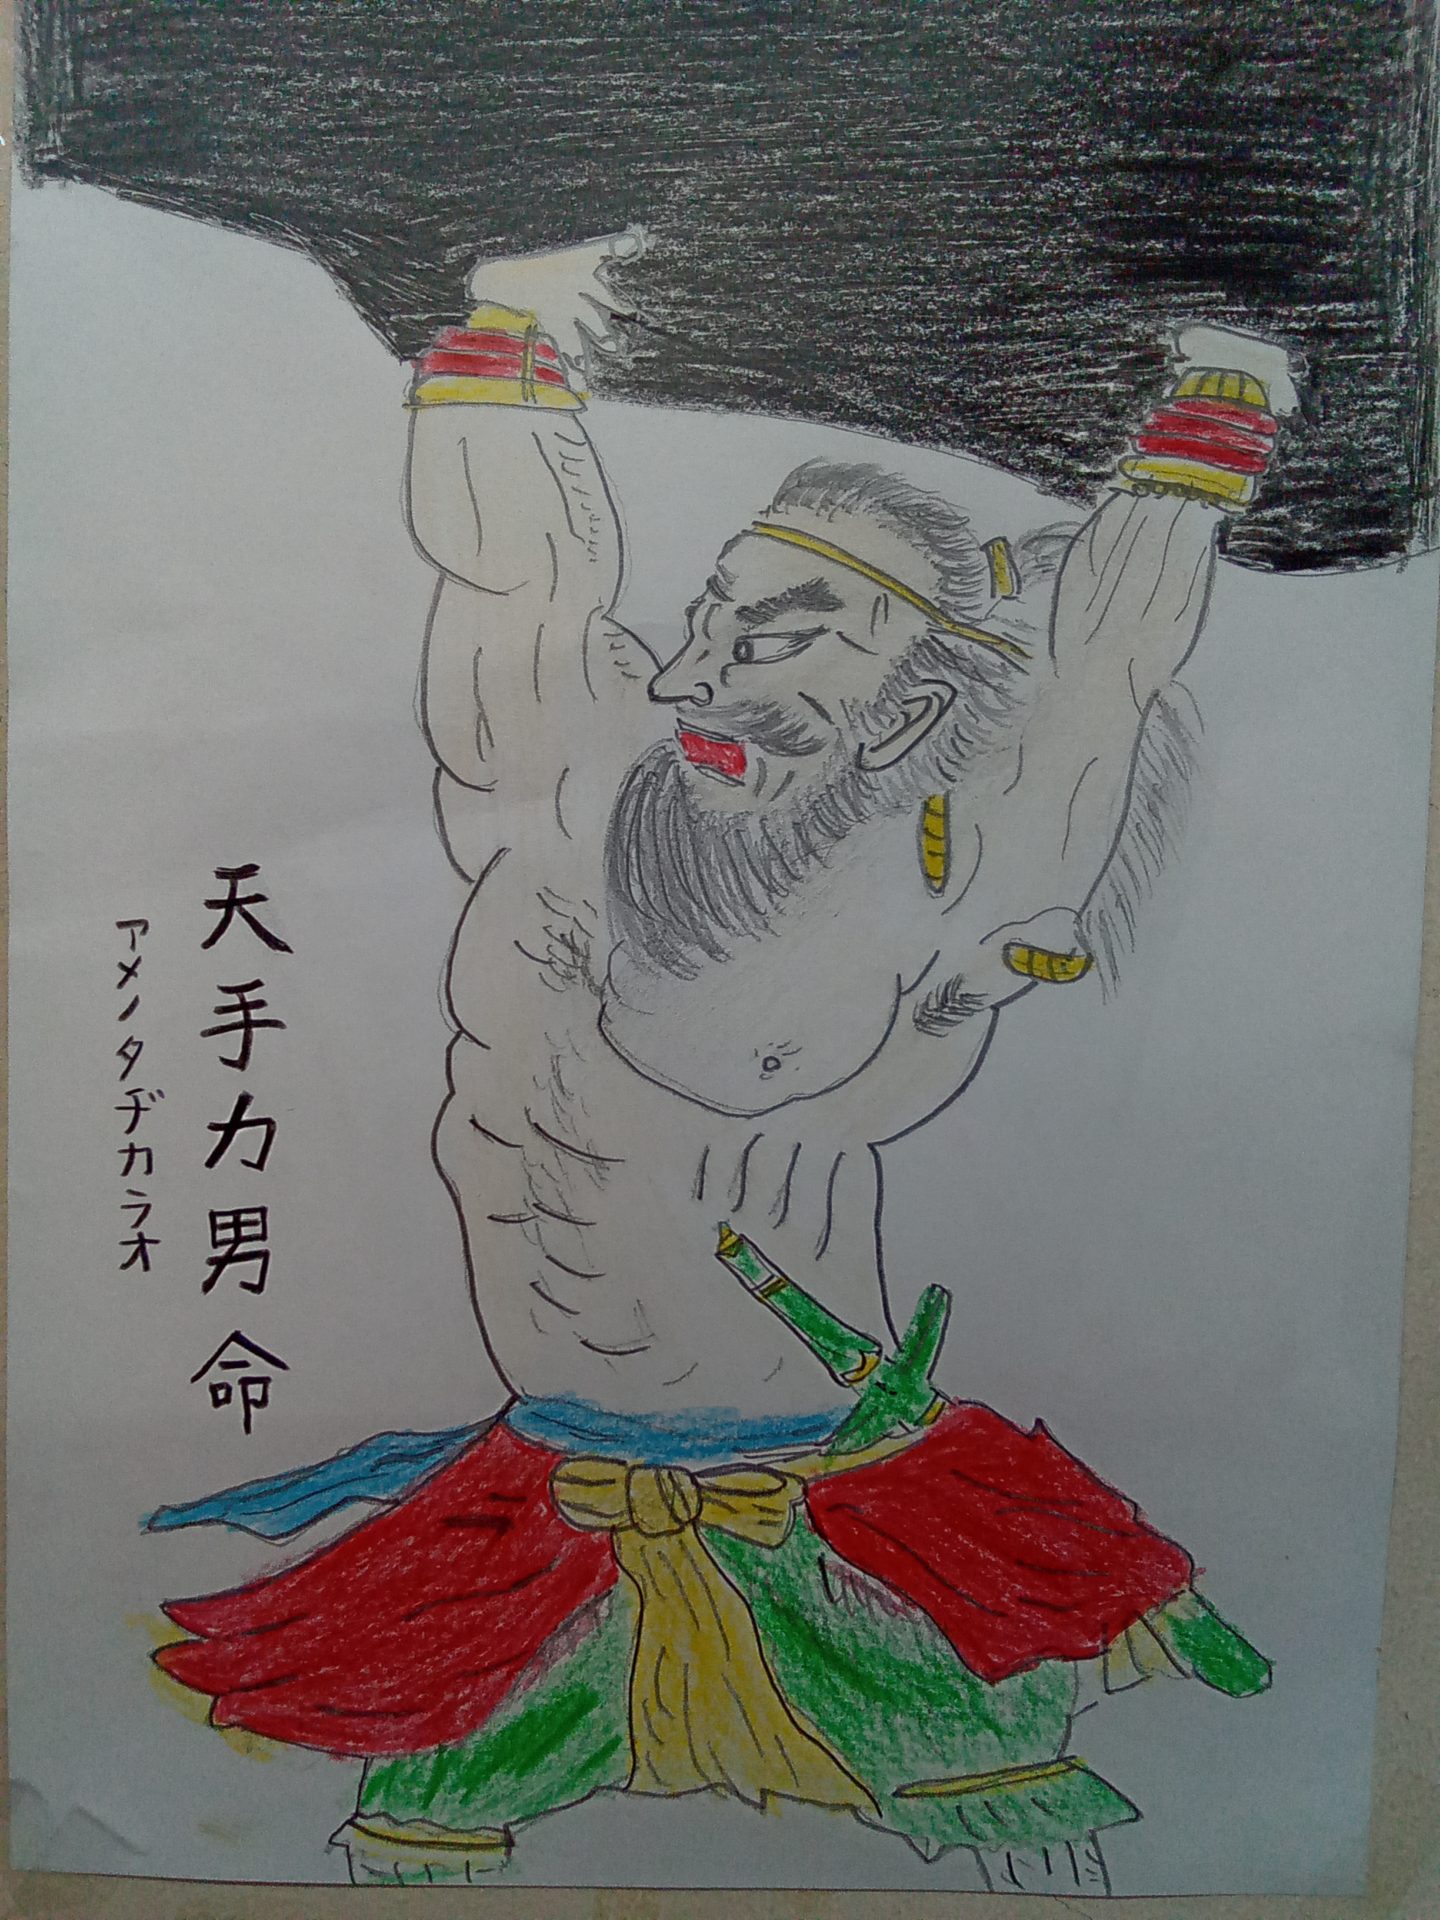 天手力男命
アメノタヂカラオ